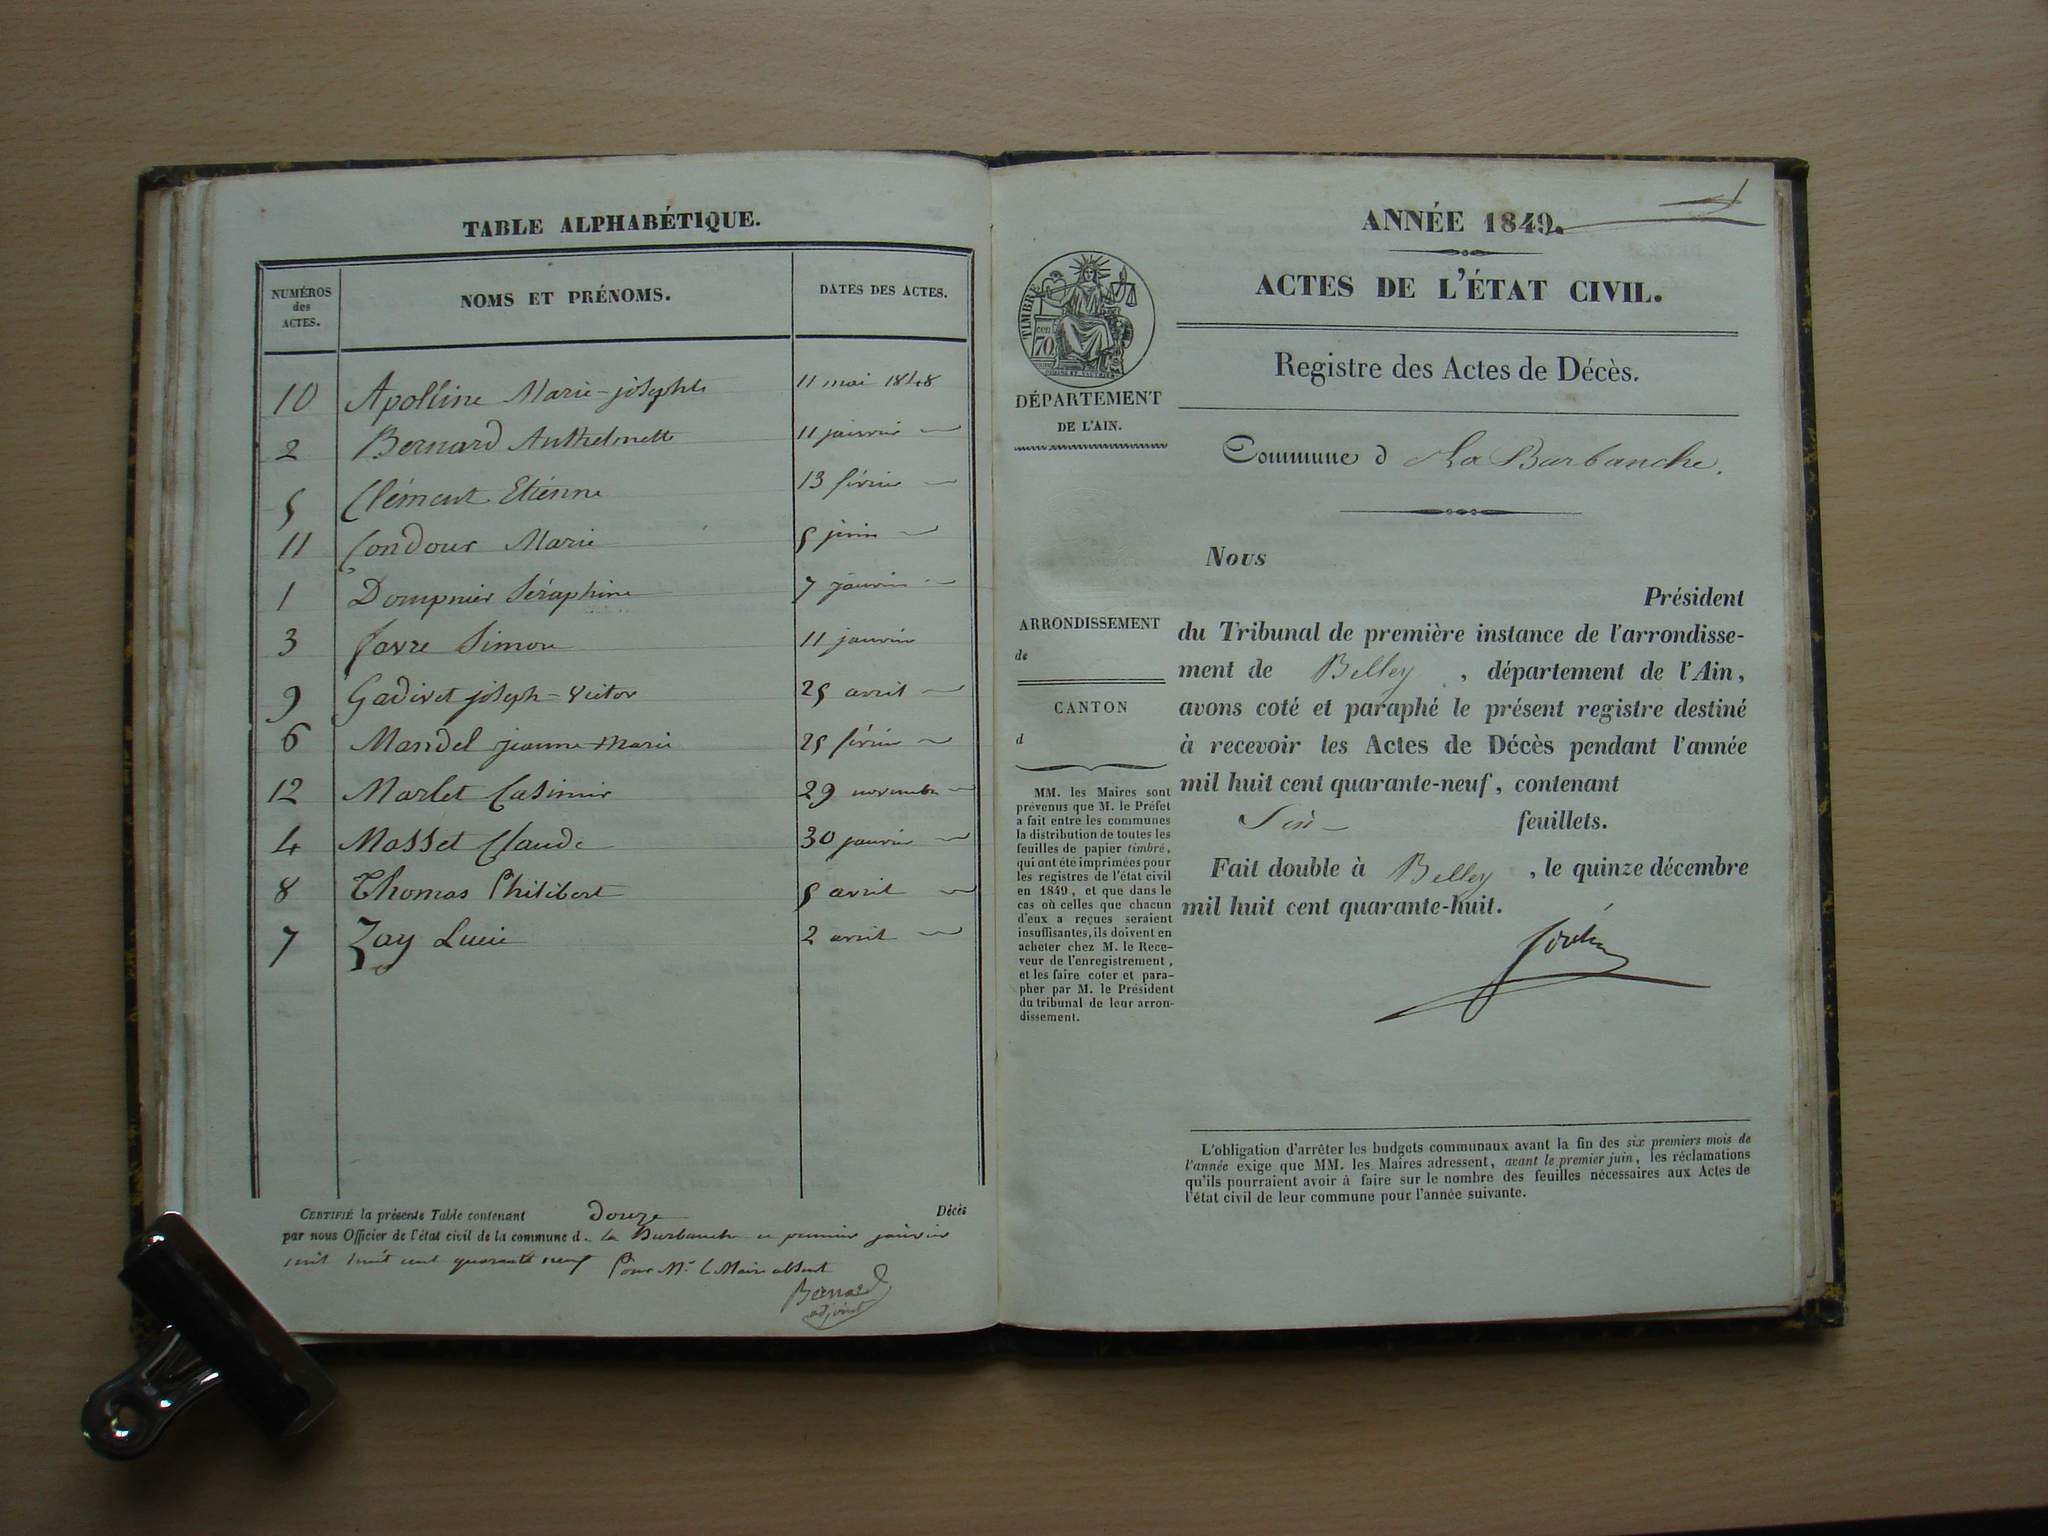 TABLE ALPHABÉTIQUE.
NUMÉROS
des
ACTES.
NOMS ET PRÉNOMS.
DATES DES ACTES.
10 Apolline Marie-josephte 11 mai 1848
2 Bernard Anthelmette 11 janvier
5 Clément Etienne 13 février
11 Condour Marie 5 juin
1 Dompnier Séraphine 7 janvier
3 favre Simon 11 janvier
9 Gadivet joseph-victor 25 avril
6 Mandel jeanne marie 25 février
12 Marlet Casimir 29 novembre
4 Masset Claude 30 janvier
8 Thomas Philibert 5 avril
7 Zay Lucie 2 avril
CERTIFIÉ la présente Table contenant douze Décès
par nous Officier de l'état civil de la commune d. la Burbanche ce premier janvier
mil huit cent quarante neuf Pour Mr le Maire absent
Bernard
adjoint
1
ANNÉE 1849.
ACTES DE L'ÉTAT CIVIL.
TIMBRE
70
cen
DÉPARTEMENT
DE L'AIN.
Registre des Actes de Décès.
Commune d La Burbanche.
Nous
Président
du Tribunal de première instance de l'arrondisse-
ment de Belley, département de l'Ain,
avons coté et paraphé le présent registre destiné
à recevoir les Actes de Décès pendant l'année
mil huit cent quarante-neuf, contenant
Six feuillets.
Fait double à Belley, le quinze décembre
mil huit cent quarante-huit.
ARRONDISSEMENT
de
CANTON
d
MM. les Maires sont
prévenus que M. le Préfet
a fait entre les communes
la distribution de toutes les
feuilles de papier timbré,
qui ont été imprimées pour
les registres de l'état civil
en 1849, et que dans le
cas où celles que chacun
d'eux a reçues seraient
insuffisantes, ils doivent en
acheter chez M. le Rece-
veur de l'enregistrement,
et les faire coter et para-
pher par M. le Président
du tribunal de leur arron-
dissement.
L'obligation d'arrêter les budgets communaux avant la fin des six premiers mois de
l'année exige que MM. les Maires adressent, avant le premier juin, les réclamations
qu'ils pourraient avoir à faire sur le nombre des feuilles nécessaires aux Actes de
l'état civil de leur commune pour l'année suivante.